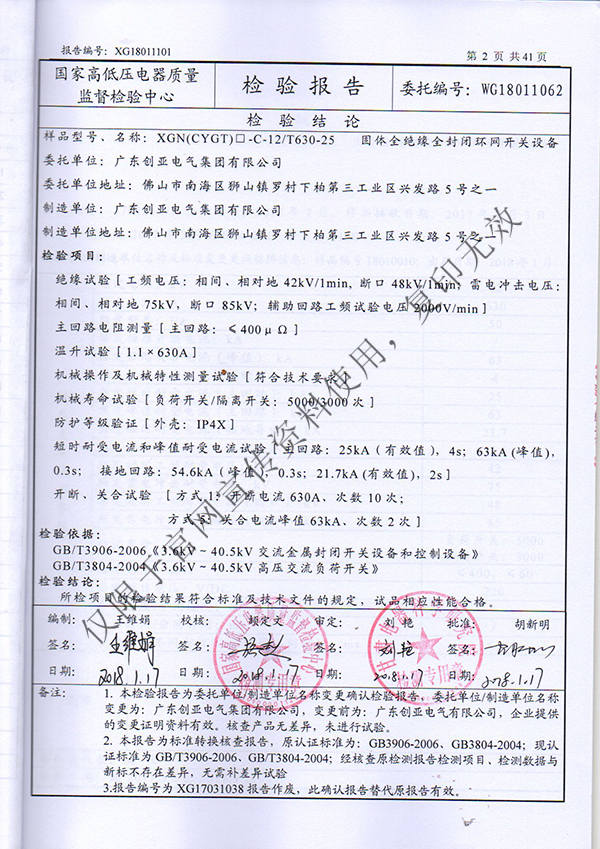 报告编号：XG18011101
第 2 页 共 41 页
国家高低压电器质量
监督检验中心
检 验 报 告
委托编号：WG18011062
检 验 结 论
样品型号、名称：XGN(CYGT)□-C-12/T630-25 固体全绝缘全封闭环网开关设备
委托单位：广东创亚电气集团有限公司
委托单位地址：佛山市南海区狮山镇罗村下柏第三工业区兴发路 5 号之一
制造单位：广东创亚电气集团有限公司
制造单位地址：佛山市南海区狮山镇罗村下柏第三工业区兴发路 5 号之一
检验项目：
绝缘试验［工频电压：相间、相对地 42kV/1min，断口 48kV/1min；雷电冲击电压：
相间、相对地 75kV，断口 85kV；辅助回路工频试验电压 2000V/min］
主回路电阻测量［主回路：≤400μΩ］
温升试验［1.1×630A］
机械操作及机械特性测量试验［符合技术要求］
机械寿命试验［负荷开关/隔离开关：5000/3000 次］
防护等级验证［外壳：IP4X］
短时耐受电流和峰值耐受电流试验［主回路：25kA（有效值），4s；63kA(峰值)，
0.3s； 接地回路：54.6kA（峰值），0.3s；21.7kA(有效值)，2s］
开断、关合试验 ［方式 1：开断电流 630A、次数 10 次；
方式 5：关合电流峰值 63kA、次数 2 次］
检验依据：
GB/T3906-2006《3.6kV～40.5kV 交流金属封闭开关设备和控制设备》
GB/T3804-2004《3.6kV～40.5kV 高压交流负荷开关》
检验结论：
所检项目的检验结果符合标准及技术文件的规定，试品相应性能合格。
编制： 王维娟 校核： 顾定文 审定： 刘 艳 批准： 胡新明
签名：王维娟 签名： 签名：刘艳 签名：
日期：2018.1.17 日期：2018.1.17 日期：2018.1.17 日期：2018.1.17
备注：
1. 本检验报告为委托单位/制造单位名称变更确认检验报告，委托单位/制造单位名称
变更为：广东创亚电气集团有限公司，变更前为：广东创亚电气有限公司，企业提供
的变更证明资料有效。核查产品无差异，未进行试验。
2. 本报告为标准转换核查报告，原认证标准为：GB3906-2006、GB3804-2004；现认
证标准为 GB/T3906-2006、GB/T3804-2004；经核查原检测报告检测项目、检测数据与
新标不存在差异，无需补差异试验
3.报告编号为 XG17031038 报告作废，此确认报告替代原报告有效。
仅限于官网宣传资料使用，复印无效